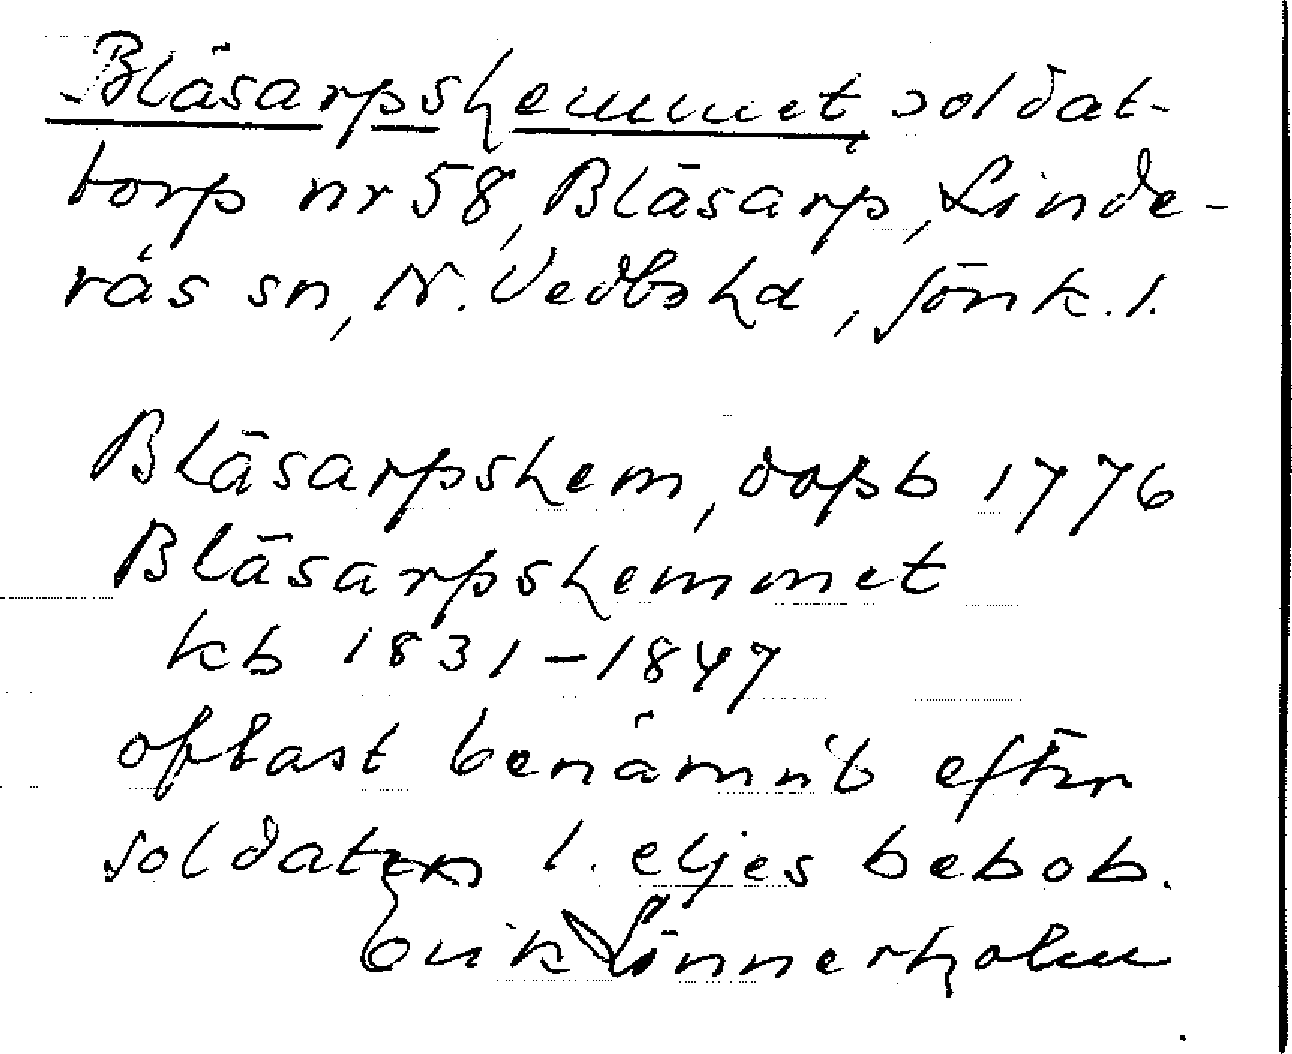 Bläsarpshemmet soldat-
torp nr 58, Bläsarp, Linde-
rås sn, N. Vedbo hd, Jönk. l.
Bläsarpshem, dopb 1776
Bläsarpshemmet
kb 1831–1847
oftast benämnt efter
soldaten l. eljes bebob.
Erik Linnerholm